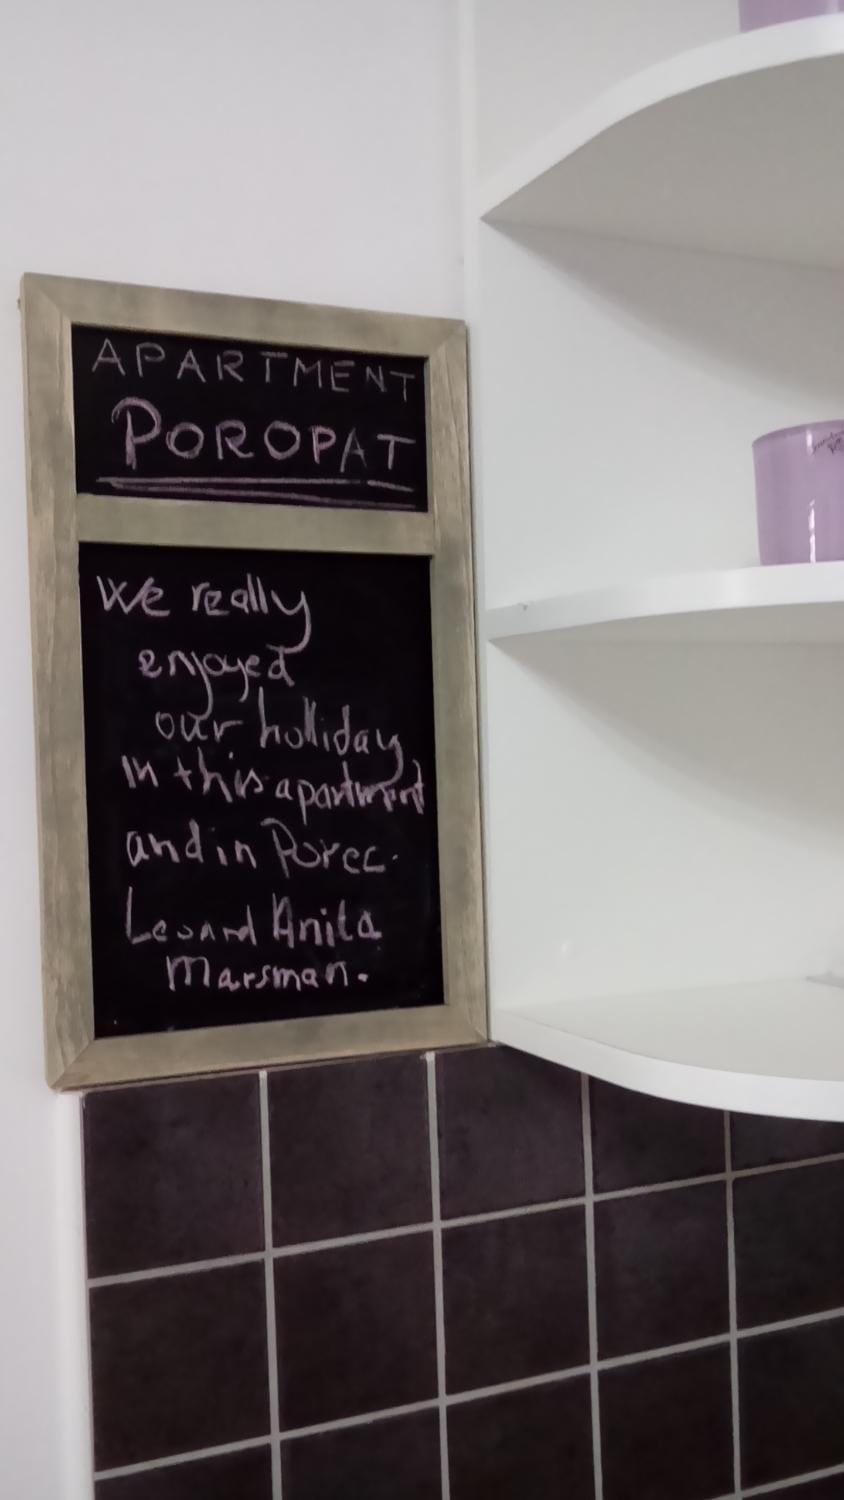 APARTMENT
POROPAT
We really
enjoyed
our holliday
in this apartment
and in Porec.
Leo and Anita
Marsman.